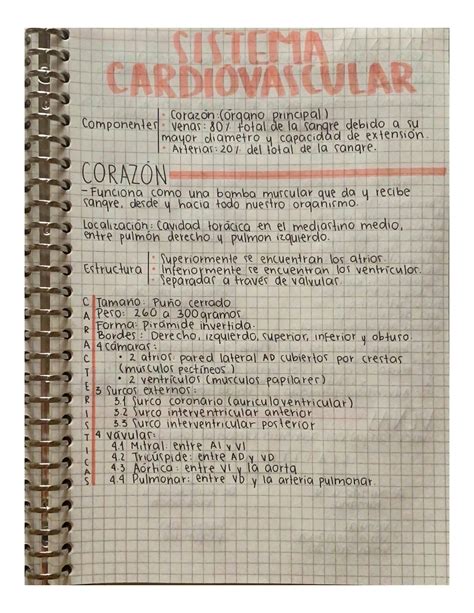 SISTEMA
CARDIOVASCULAR
· Corazón (órgano principal)
Componentes · Venas: 80% total de la sangre debido a su
mayor diametro y capacidad de extensión.
· Arterias: 20% del total de la sangre.
CORAZÓN
- Funciona como una bomba muscular que da y recibe
sangre, desde y hacia todo nuestro organismo.
Localización: Cavidad torácica en el mediastino medio,
entre pulmón derecho y pulmon izquierdo.
· Superiormente se encuentran los atrios.
Estructura · Inferiormente se encuentran los ventrículos.
· Separadar a traves de valvular.
CARACTERISTICAS
Tamano: Puño cerrado
Peso: 260 a 300 gramos
Forma: Pirámide invertida.
Bordes: Derecho, izquierdo, superior, inferior y obtuso.
4 cámaras:
• 2 atrios pared lateral AD cubiertos por crestas
(musculos pectíneos)
• 2 ventrículos (músculos papilares)
3 Surcos externos:
3.1 Surco coronario (auriculoventricular)
3.2 Surco interventricular anterior
3.3 Surco interventricular posterior
4 Vávular:
4.1 Mitral: entre AI y VI
4.2 Tricúspide: entre AD y VD
4.3 Aórtica: entre VI y la aorta
4.4 Pulmonar: entre VD y la arteria pulmonar.